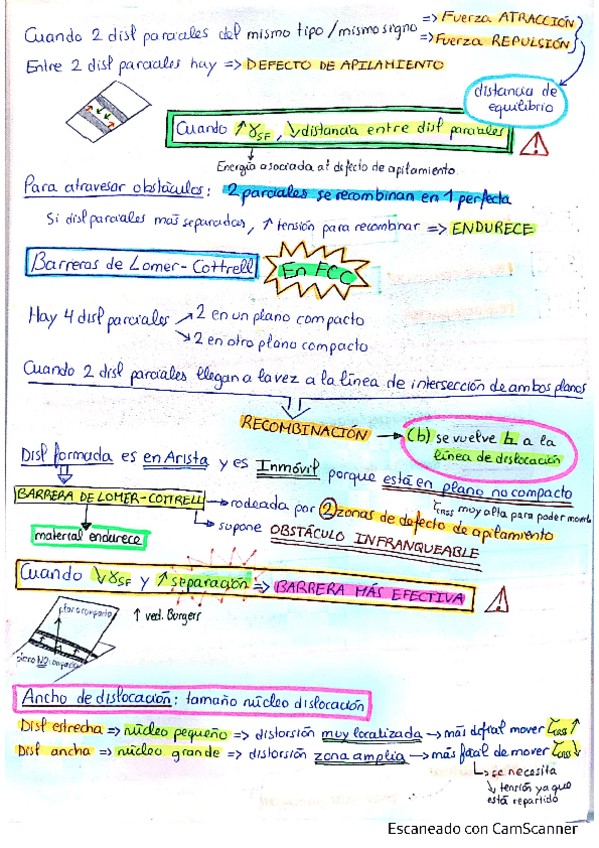 Cuando 2 disl parciales del mismo tipo/mismo signo => Fuerza ATRACCIÓN
=> Fuerza REPULSIÓN
Entre 2 disl parciales hay => DEFECTO DE APILAMIENTO
distancia de
equilibrio
Cuando ↑ γSF, ↓ distancia entre disl parciales
Energía asociada al defecto de apilamiento
Para atravesar obstáculos: 2 parciales se recombinan en 1 perfecta
Si disl parciales más separadas, ↑ tensión para recombinar => ENDURECE
Barreras de Lomer-Cottrell
En FCC
Hay 4 disl parciales → 2 en un plano compacto
→ 2 en otro plano compacto
Cuando 2 disl parciales llegan a la vez a la línea de intersección de ambos planos
RECOMBINACIÓN → (b) se vuelve ⊥ a la
línea de dislocación
Disl formada es en Arista y es Inmóvil porque está en plano no compacto
τCRSS muy alta para poder moverla
BARRERA DE LOMER-COTTRELL → rodeada por 2 zonas de defecto de apilamiento
→ supone OBSTÁCULO INFRANQUEABLE
material endurece
Cuando ↓γSF y ↑ separación => BARRERA MÁS EFECTIVA
plano compacto
↑ vect. Burgers
plano NO compacto
Ancho de dislocación: tamaño núcleo dislocación
Disl estrecha => núcleo pequeño => distorsión muy localizada → más difícil mover τCRSS ↑
Disl ancha => núcleo grande => distorsión zona amplia → más fácil de mover τCRSS ↓
↳ se necesita
↓ tensión ya que
está repartido
Escaneado con CamScanner